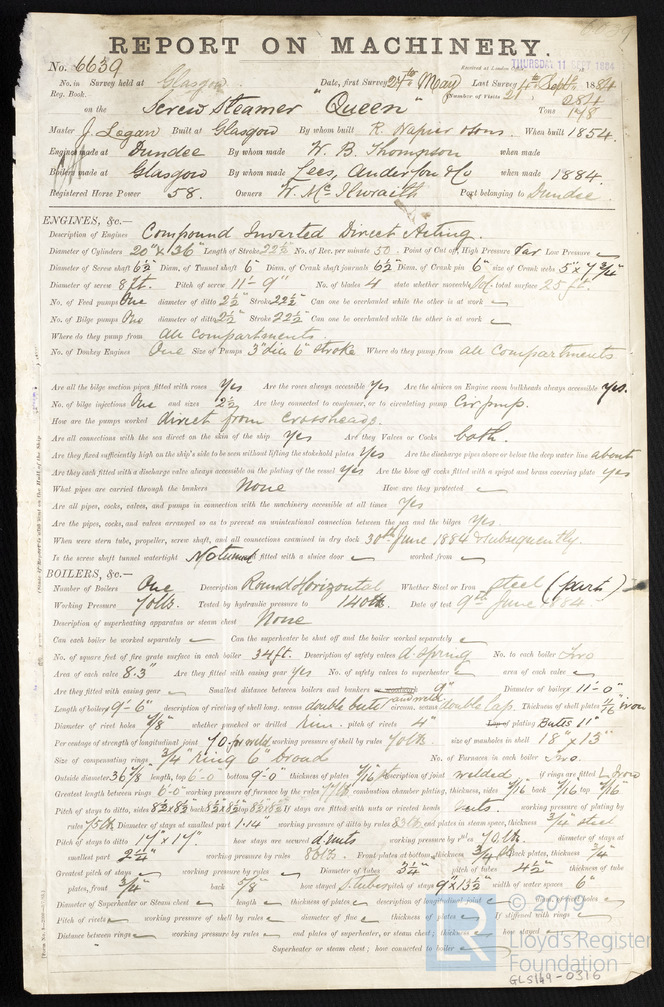 REPORT ON MACHINERY.
No. 6639 Received at London Office THURSDAY 11 SEPT 1884
No. in Survey held at Glasgow Date, first Survey 24th May Last Survey 4th Sept 1884
Reg. Book. (Number of Visits 21)
on the Screw Steamer "Queen" Tons 178
Master J. Logan Built at Glasgow By whom built R. Napier & Sons. When built 1854.
Engines made at Dundee By whom made W. B. Thompson when made
Boilers made at Glasgow By whom made Lees, Anderson & Co when made 1884.
Registered Horse Power 58. Owners W. McIlwraith Port belonging to Dundee
ENGINES, &c.—
Description of Engines Compound Inverted Direct Acting.
Diameter of Cylinders 20" & 36" Length of Stroke 22½" No. of Rev. per minute 50. Point of Cut off, High Pressure Var Low Pressure
Diameter of Screw shaft 6½ Diam. of Tunnel shaft 6" Diam. of Crank shaft journals 6½ Diam. of Crank pin 6" size of Crank webs 5" x 7¾"
Diameter of screw 8 ft. Pitch of screw 11'-9" No. of blades 4 state whether moveable total surface 25 ft
No. of Feed pumps One diameter of ditto 2½" Stroke 22½" Can one be overhauled while the other is at work
No. of Bilge pumps One diameter of ditto 2½" Stroke 22½ Can one be overhauled while the other is at work
Where do they pump from all compartments
No. of Donkey Engines One Size of Pumps 3" dia 6" stroke Where do they pump from all compartments
Are all the bilge suction pipes fitted with roses Yes Are the roses always accessible Yes Are the sluices on Engine room bulkheads always accessible Yes.
No. of bilge injections One and sizes 2½ Are they connected to condenser, or to circulating pump Cir pump.
How are the pumps worked direct from Crossheads.
Are all connections with the sea direct on the skin of the ship Yes Are they Valves or Cocks both.
Are they fixed sufficiently high on the ship's side to be seen without lifting the stokehold plates Yes Are the discharge pipes above or below the deep water line above
Are they each fitted with a discharge valve always accessible on the plating of the vessel Yes Are the blow off cocks fitted with a spigot and brass covering plate Yes
What pipes are carried through the bunkers None How are they protected
Are all pipes, cocks, valves, and pumps in connection with the machinery accessible at all times Yes
Are the pipes, cocks, and valves arranged so as to prevent an unintentional connection between the sea and the bilges Yes.
When were stern tube, propeller, screw shaft, and all connections examined in dry dock 30th June 1884 & subsequently.
Is the screw shaft tunnel watertight No tunnel fitted with a sluice door worked from
BOILERS, &c.—
Number of Boilers One Description Round Horizontal Whether Steel or Iron Steel (part)
Working Pressure 70 lb. Tested by hydraulic pressure to 140 lb. Date of test 9th June 1884
Description of superheating apparatus or steam chest None
Can each boiler be worked separately Can the superheater be shut off and the boiler worked separately
No. of square feet of fire grate surface in each boiler 34 ft. Description of safety valves d. Spring No. to each boiler Two
Area of each valve 8.3" Are they fitted with easing gear Yes No. of safety valves to superheater area of each valve
Are they fitted with easing gear Smallest distance between boilers and bunkers 9" Diameter of boilers 11'-0"
Length of boilers 9'-6" description of riveting of shell long. seams double butts circum. seams double lap. Thickness of shell plates iron
Diameter of rivet holes whether punched or drilled pitch of rivets 4" Lap of plating Butts 11"
Per centage of strength of longitudinal joint 70. working pressure of shell by rules 70 lb. size of manholes in shell 18" x 13"
Size of compensating rings ¾ ring 6" broad No. of Furnaces in each boiler Two.
Outside diameter 36⅞" length, top 6'-0" bottom 9'-0" thickness of plates 7/16 description of joint welded if rings are fitted
Greatest length between rings 6'-0" working pressure of furnace by the rules combustion chamber plating, thickness, sides 7/16 back 7/16 top 7/16
Pitch of stays to ditto, sides 8½x8½ back 8½x8½ top 8½x8½ If stays are fitted with nuts or riveted heads Nuts. working pressure of plating by
rules 75 lb Diameter of stays at smallest part 1.14" working pressure of ditto by rules 83 lb end plates in steam space, thickness ¾" steel
Pitch of stays to ditto 17" x 17". how stays are secured d. nuts working pressure by rules 70 lb. diameter of stays at
smallest part 2¼" working pressure by rules Front plates at bottom, thickness ¾" Back plates, thickness ¾"
Greatest pitch of stays working pressure by rules Diameter of tubes 3¼" pitch of tubes 4½" thickness of tube
plates, front ¾" back ⅝" how stayed S. tubes pitch of stays 9" x 13½" width of water spaces 6"
Diameter of Superheater or Steam chest length thickness of plates description of longitudinal joint diam. of rivet holes
Pitch of rivets working pressure of shell by rules diameter of flue thickness of plates If stiffened with rings
Distance between rings working pressure by rules end plates of superheater, or steam chest; thickness how stayed
Superheater or steam chest; how connected to boiler
LR
© 2019
Lloyd's Register
Foundation
GLS149-0316